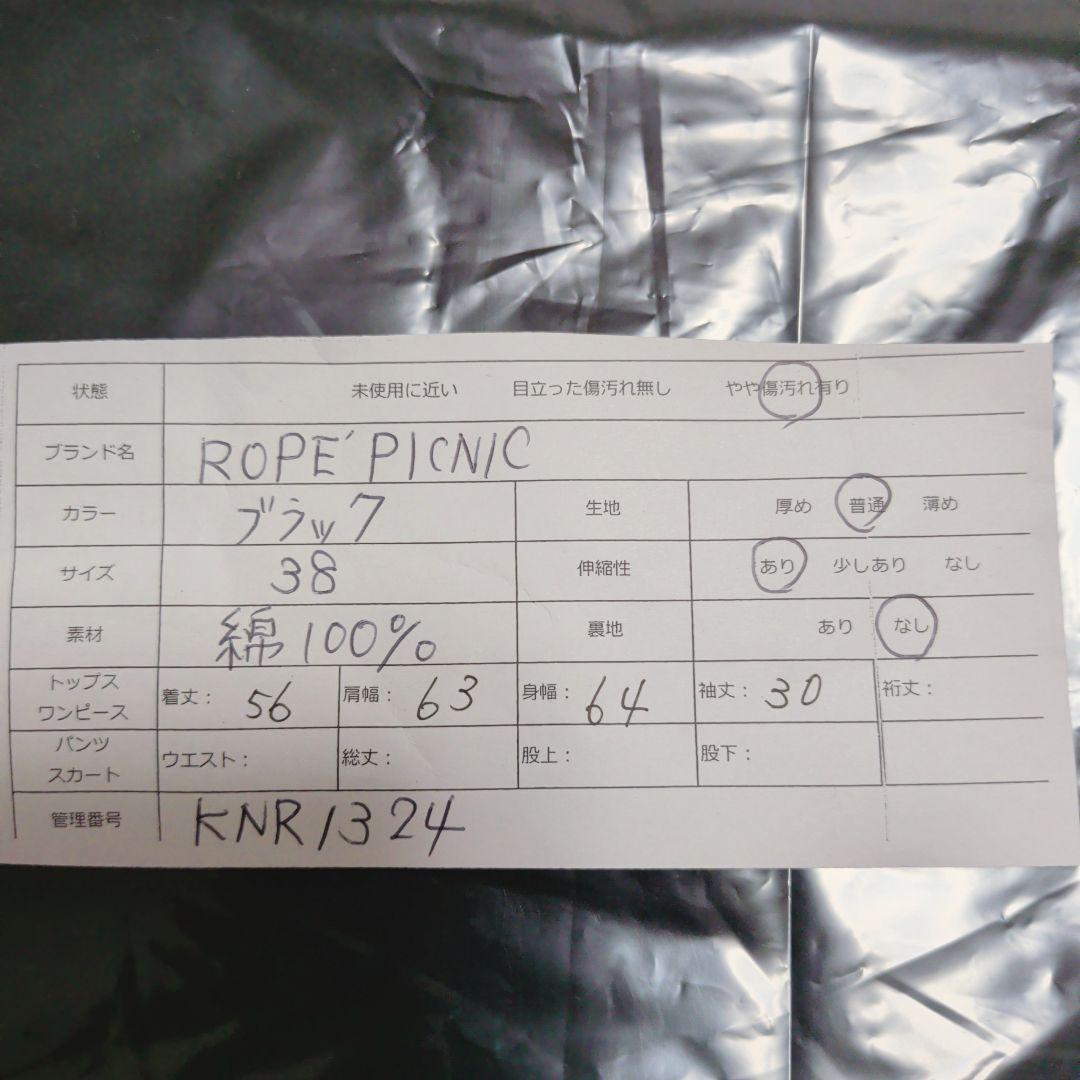 状態 未使用に近い 目立った傷汚れ無し やや傷汚れ有り
ブランド名 ROPE´ PICNIC
カラー ブラック 生地 厚め 普通 薄め
サイズ 38 伸縮性 あり 少しあり なし
素材 綿100% 裏地 あり なし
トップス
ワンピース 着丈: 56 肩幅: 63 身幅: 64 袖丈: 30 裄丈:
パンツ
スカート ウエスト: 総丈: 股上: 股下:
管理番号 KNR1324